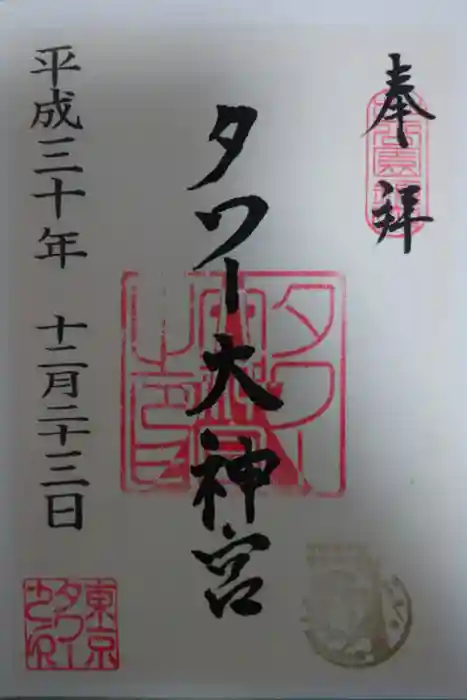 奉拝
タワー大神宮
平成三十年 十二月二十三日
東京
タワー